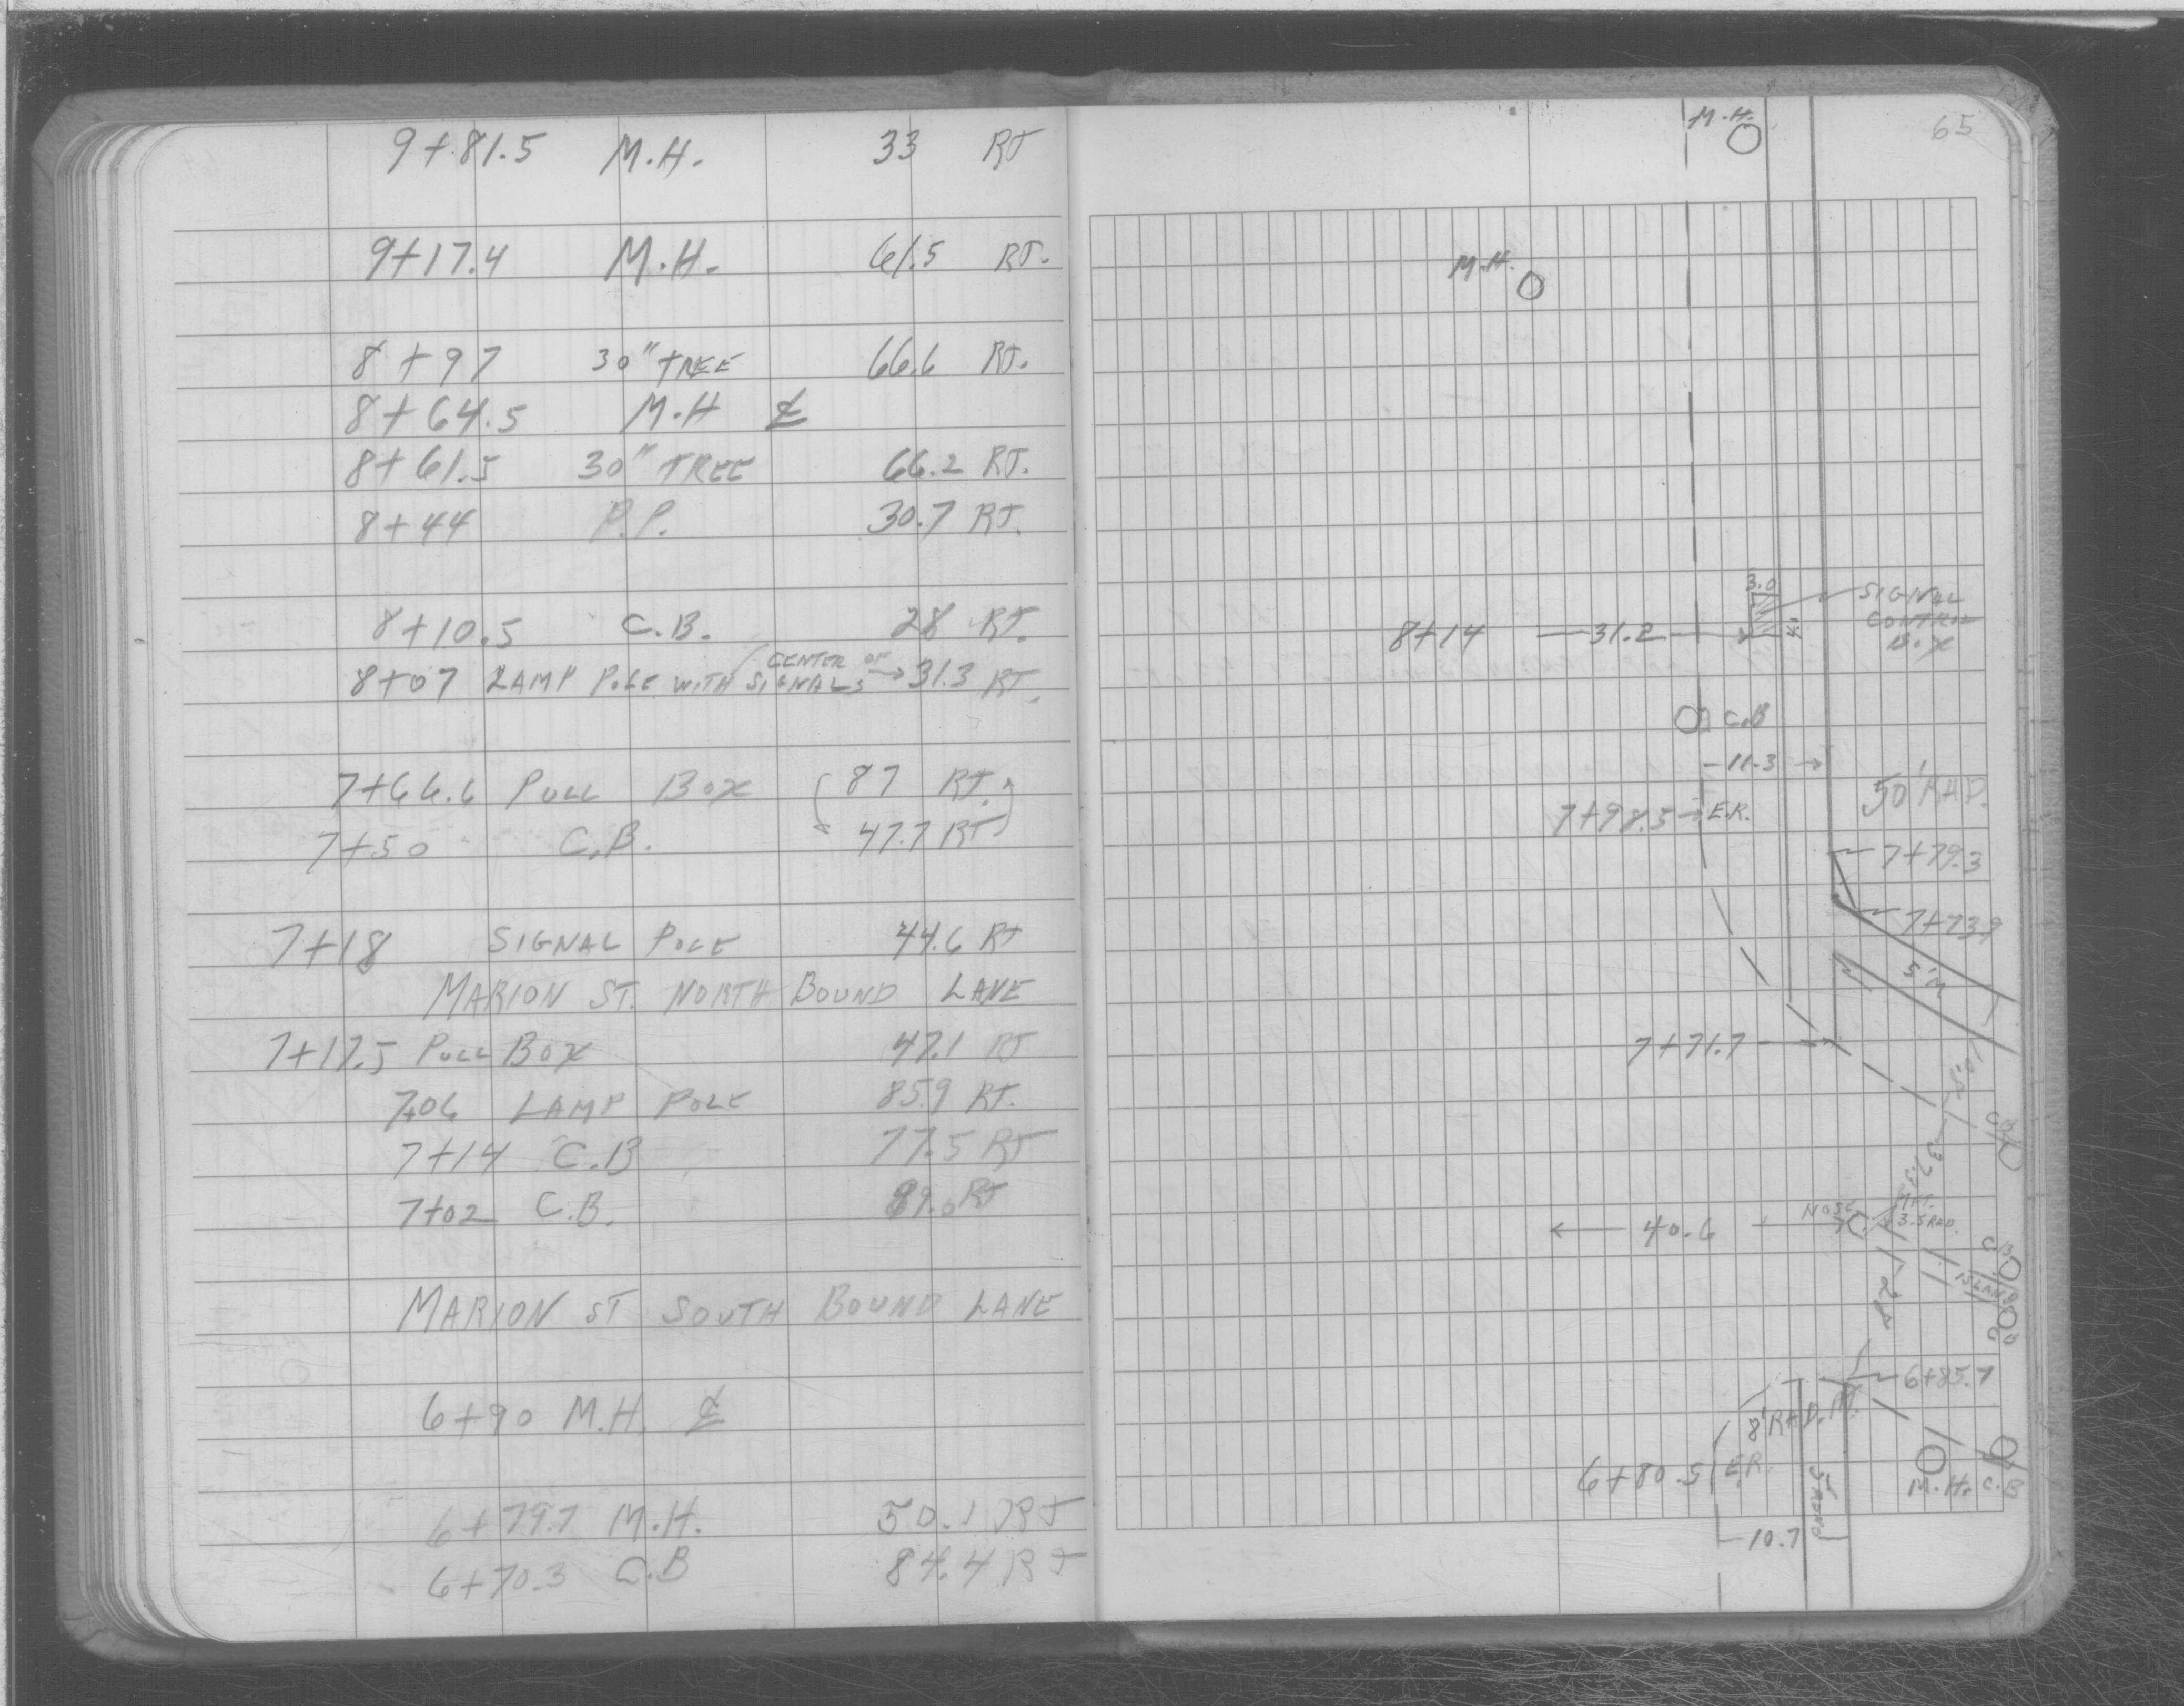 9+81.5 M.H. 33 RT
9+17.4 M.H. 61.5 RT.
8+97 30" TREE 66.6 RT.
8+64.5 M.H ℄
8+61.5 30" TREE 66.2 RT.
8+44 P.P. 30.7 RT.
8+10.5 C.B. 28 RT.
8+07 LAMP POLE WITH SIGNALS CENTER OF → 31.3 RT.
7+66.6 PULL BOX (87 RT.)
7+50 C.B. 47.7 RT
7+18 SIGNAL POLE 44.6 RT
MARION ST. NORTH BOUND LANE
7+17.5 PULL BOX 47.1 RT
7+06 LAMP POLE 85.9 RT.
7+14 C.B 77.5 RT
7+02 C.B. 89.0 RT
MARION ST SOUTH BOUND LANE
6+90 M.H. ℄
6+79.7 M.H. 50.1 RT
6+70.3 C.B 84.4 RT
65
M.H.
M.H.
3.0
SIGNAL
CONTROL
BOX
8+14 31.2 4.1
C.B
11.3
50' RAD.
7+98.5 → E.R.
7+79.3
7+73.9
5' W
7+71.7
10.5
C.B
37.3
NOSE
MT.
3.5 RAD.
← 40.6
C.B
ISLAND
28
6+85.7
8' RAD. PT.
6+80.5 E.R.
M.H. C.B
10.7